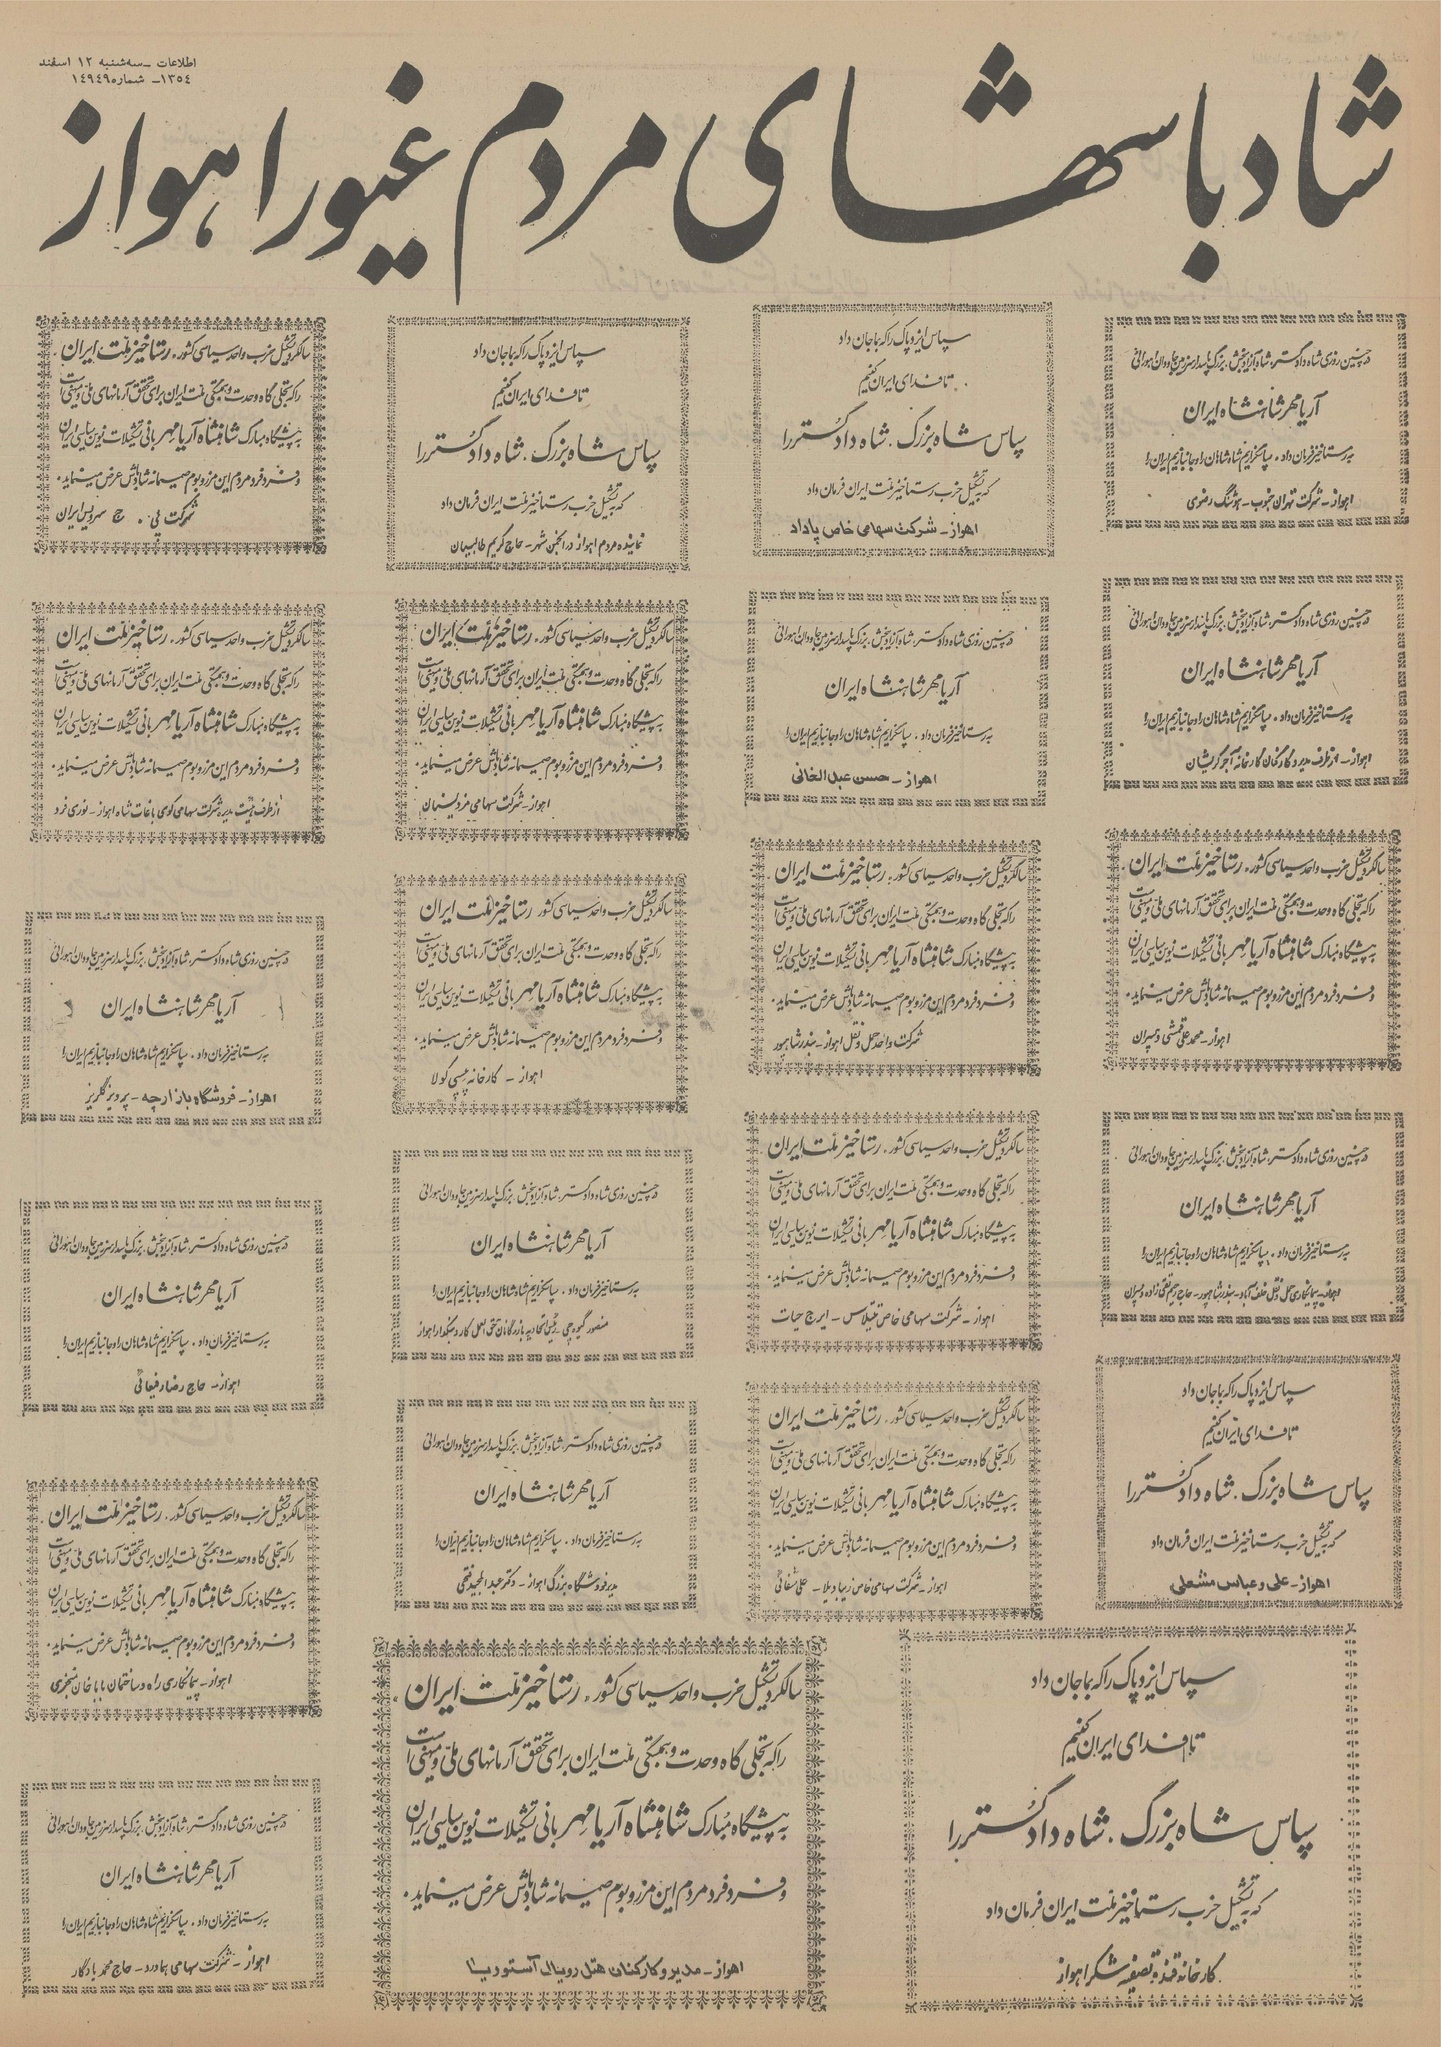 اطلاعات ـ سه‌شنبه ۱۲ اسفند
۱۳۵٤ـ شماره ۱٤۹٤۹
شادباشهای مردم غیور اهواز
در چنین روزی شاه دادگستر، شاه آزادیبخش، بزرگ پاسدار سرزمین جاودان اهورائی
آریامهر شاهنشاه ایران
به رستاخیز فرمان داد، سپاسگزاریم شاه شاهان را و جانبازیم ایران را
اهواز ـ شرکت تهران جنوب ـ هوشنگ رضوی
در چنین روزی شاه دادگستر، شاه آزادیبخش، بزرگ پاسدار سرزمین جاودان اهورائی
آریامهر شاهنشاه ایران
به رستاخیز فرمان داد، سپاسگزاریم شاه شاهان را و جانبازیم ایران را
اهواز ـ از طرف مدیر و کارکنان کارخانه آجر
سالگرد تشکیل حزب واحد سیاسی کشور، رستاخیز ملت ایران
را که تجلی گاه وحدت و همبستگی ملت ایران برای تحقق آرمانهای ملی و میهنی است
به پیشگاه مبارک شاهنشاه آریامهر بانی تشکیلات نوین سیاسی ایران
و فرد فرد مردم این مرز و بوم صمیمانه شادباش عرض مینماید.
اهواز ـ محمدعلی و پسران
در چنین روزی شاه دادگستر، شاه آزادیبخش، بزرگ پاسدار سرزمین جاودان اهورائی
آریامهر شاهنشاه ایران
به رستاخیز فرمان داد، سپاسگزاریم شاه شاهان را و جانبازیم ایران را
اهواز ـ پیمانکاری حمل و نقل خلف آباد ـ بندر شاهپور ـ حاج رحیم تقی زاده و پسران
سپاس ایزد پاک را که بما جان داد
تا فدای ایران کنیم
سپاس شاه بزرگ، شاه دادگستر را
که به تشکیل حزب رستاخیز ملت ایران فرمان داد
اهواز ـ علی و عباس مشعلی
سپاس ایزد پاک را که بما جان داد
تا فدای ایران کنیم
سپاس شاه بزرگ، شاه دادگستر را
که به تشکیل حزب رستاخیز ملت ایران فرمان داد
کارخانه قند و تصفیه شکر اهواز
سپاس ایزد پاک را که بما جان داد
تا فدای ایران کنیم
سپاس شاه بزرگ، شاه دادگستر را
که به تشکیل حزب رستاخیز ملت ایران فرمان داد
اهواز ـ شرکت سهامی خاص پاداد
در چنین روزی شاه دادگستر، شاه آزادیبخش، بزرگ پاسدار سرزمین جاودان اهورائی
آریامهر شاهنشاه ایران
به رستاخیز فرمان داد، سپاسگزاریم شاه شاهان را و جانبازیم ایران را
اهواز ـ حسن عبدالخانی
سالگرد تشکیل حزب واحد سیاسی کشور، رستاخیز ملت ایران
را که تجلی گاه وحدت و همبستگی ملت ایران برای تحقق آرمانهای ملی و میهنی است
به پیشگاه مبارک شاهنشاه آریامهر بانی تشکیلات نوین سیاسی ایران
و فرد فرد مردم این مرز و بوم صمیمانه شادباش عرض مینماید.
شرکت واحد حمل و نقل اهواز ـ بندر شاهپور
سالگرد تشکیل حزب واحد سیاسی کشور، رستاخیز ملت ایران
را که تجلی گاه وحدت و همبستگی ملت ایران برای تحقق آرمانهای ملی و میهنی است
به پیشگاه مبارک شاهنشاه آریامهر بانی تشکیلات نوین سیاسی ایران
و فرد فرد مردم این مرز و بوم صمیمانه شادباش عرض مینماید.
اهواز ـ شرکت سهامی خاص ـ ایرج حیات
سالگرد تشکیل حزب واحد سیاسی کشور، رستاخیز ملت ایران
را که تجلی گاه وحدت و همبستگی ملت ایران برای تحقق آرمانهای ملی و میهنی است
به پیشگاه مبارک شاهنشاه آریامهر بانی تشکیلات نوین سیاسی ایران
و فرد فرد مردم این مرز و بوم صمیمانه شادباش عرض مینماید.
اهواز ـ شرکت سهامی خاص زیبا ویلا ـ علی شفائی
سپاس ایزد پاک را که بما جان داد
تا فدای ایران کنیم
سپاس شاه بزرگ، شاه دادگستر را
که به تشکیل حزب رستاخیز ملت ایران فرمان داد
نماینده مردم اهواز در انجمن شهر ـ حاج کریم طالبیان
سالگرد تشکیل حزب واحد سیاسی کشور، رستاخیز ملت ایران
را که تجلی گاه وحدت و همبستگی ملت ایران برای تحقق آرمانهای ملی و میهنی است
به پیشگاه مبارک شاهنشاه آریامهر بانی تشکیلات نوین سیاسی ایران
و فرد فرد مردم این مرز و بوم صمیمانه شادباش عرض مینماید.
اهواز ـ شرکت سهامی
سالگرد تشکیل حزب واحد سیاسی کشور رستاخیز ملت ایران
را که تجلی گاه وحدت و همبستگی ملت ایران برای تحقق آرمانهای ملی و میهنی است
به پیشگاه مبارک شاهنشاه آریامهر بانی تشکیلات نوین سیاسی ایران
و فرد فرد مردم این مرز و بوم صمیمانه شادباش عرض مینماید.
اهواز ـ کارخانه پپسی کولا
در چنین روزی شاه دادگستر، شاه آزادیبخش، بزرگ پاسدار سرزمین جاودان اهورائی
آریامهر شاهنشاه ایران
به رستاخیز فرمان داد، سپاسگزاریم شاه شاهان را و جانبازیم ایران را
منصور رئیس اتحادیه بازرگانان حق العمل کار و بنکدار اهواز
در چنین روزی شاه دادگستر، شاه آزادیبخش، بزرگ پاسدار سرزمین جاودان اهورائی
آریامهر شاهنشاه ایران
به رستاخیز فرمان داد، سپاسگزاریم شاه شاهان را و جانبازیم ایران را
مدیر فروشگاه بزرگ اهواز ـ دکتر عبدالمجید فقهی
سالگرد تشکیل حزب واحد سیاسی کشور، رستاخیز ملت ایران،
را که تجلی گاه وحدت و همبستگی ملت ایران برای تحقق آرمانهای ملی و میهنی است
به پیشگاه مبارک شاهنشاه آریامهر بانی تشکیلات نوین سیاسی ایران
و فرد فرد مردم این مرز و بوم صمیمانه شادباش عرض مینماید.
اهواز ـ مدیر و کارکنان هتل رویال آستوریا
سالگرد تشکیل حزب واحد سیاسی کشور، رستاخیز ملت ایران،
را که تجلی گاه وحدت و همبستگی ملت ایران برای تحقق آرمانهای ملی و میهنی است
به پیشگاه مبارک شاهنشاه آریامهر بانی تشکیلات نوین سیاسی ایران
و فرد فرد مردم این مرز و بوم صمیمانه شادباش عرض مینماید.
شرکت پی . ج سرویس ایران
سالگرد تشکیل حزب واحد سیاسی کشور، رستاخیز ملت ایران
را که تجلی گاه وحدت و همبستگی ملت ایران برای تحقق آرمانهای ملی و میهنی است
به پیشگاه مبارک شاهنشاه آریامهر بانی تشکیلات نوین سیاسی ایران
و فرد فرد مردم این مرز و بوم صمیمانه شادباش عرض مینماید.
از طرف هیئت مدیره شرکت سهامی کوی باغات شاه اهواز ـ نوری فرد
در چنین روزی شاه دادگستر، شاه آزادیبخش، بزرگ پاسدار سرزمین جاودان اهورائی
آریامهر شاهنشاه ایران
به رستاخیز فرمان داد، سپاسگزاریم شاه شاهان را و جانبازیم ایران را
اهواز ـ فروشگاه بازارچه ـ پرویز گلریز
در چنین روزی شاه دادگستر، شاه آزادیبخش، بزرگ پاسدار سرزمین جاودان اهورائی
آریامهر شاهنشاه ایران
به رستاخیز فرمان داد، سپاسگزاریم شاه شاهان را و جانبازیم ایران را
اهواز ـ حاج رضا رفیعائی
سالگرد تشکیل حزب واحد سیاسی کشور، رستاخیز ملت ایران
را که تجلی گاه وحدت و همبستگی ملت ایران برای تحقق آرمانهای ملی و میهنی است
به پیشگاه مبارک شاهنشاه آریامهر بانی تشکیلات نوین سیاسی ایران
و فرد فرد مردم این مرز و بوم صمیمانه شادباش عرض مینماید.
اهواز ـ پیمانکاری راه و ساختمان باباخان
در چنین روزی شاه دادگستر، شاه آزادیبخش، بزرگ پاسدار سرزمین جاودان اهورائی
آریامهر شاهنشاه ایران
به رستاخیز فرمان داد، سپاسگزاریم شاه شاهان را و جانبازیم ایران را
اهواز ـ شرکت سهامی ـ حاج محمد یادگار